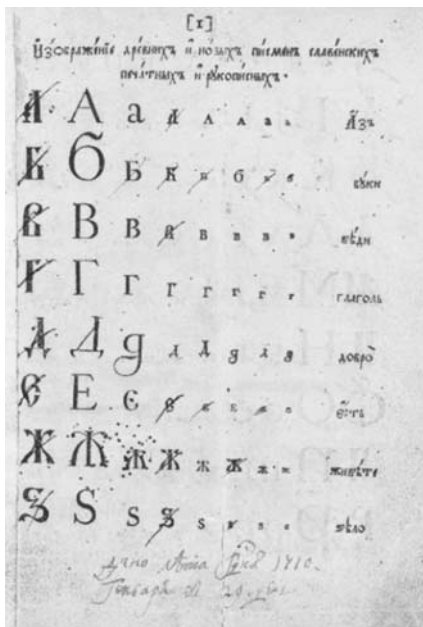 [1]
И҆зображе́нїе дре́внихъ и҆ но́выхъ пи́сменъ славе́нскихъ
печа́тныхъ и҆ рꙋкопи́сныхъ.
А А а А А А а а А҆́зъ
Б Б Б Б в б в в бꙋ́ки
В В В В В в в в вѣ́ди
Г Г Г Г Г г г г глаго́ль
Д Д д д Д д д д добро̀
Є Е є є є є є є є҆́сть
Ж Ж Ж Ж ж Ж ж ж живѣ́те
Ѕ Ѕ ѕ Ѕ ѕ ѕ ѕ ѕ ѕѣлѡ̀
лѣта 1710.
Генваря